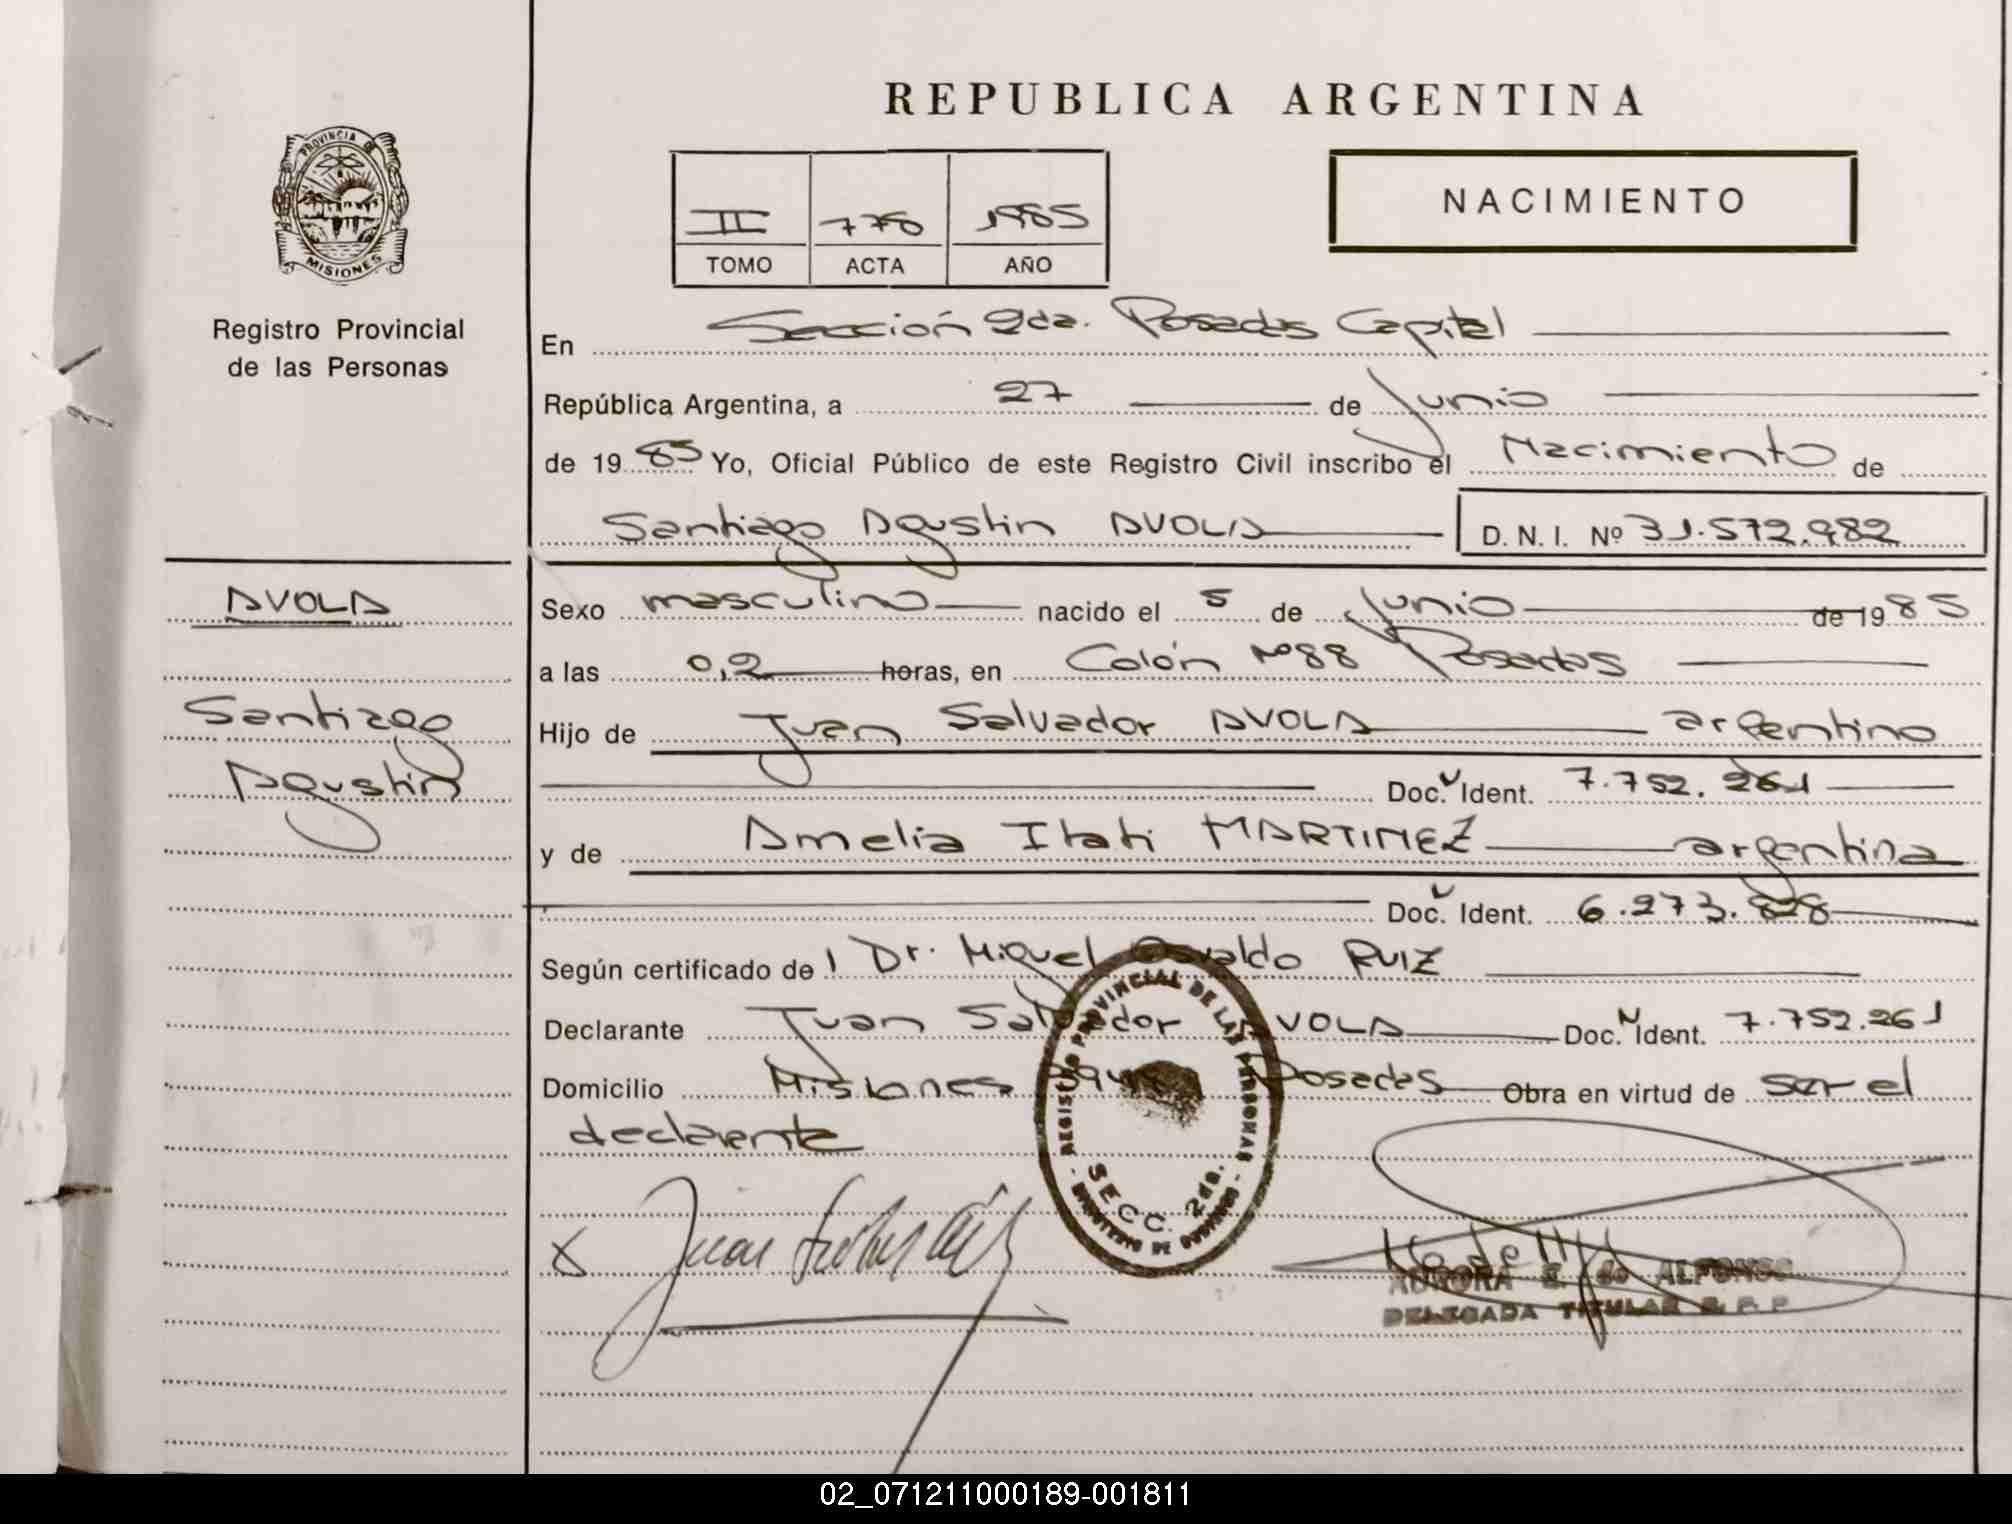 REPUBLICA ARGENTINA
PROVINCIA DE
MISIONES
Registro Provincial
de las Personas
II 778 1985
TOMO ACTA AÑO
NACIMIENTO
En Sección 2da. Posadas Capital
República Argentina, a 27 de Junio
de 1985 Yo, Oficial Público de este Registro Civil inscribo el Nacimiento de
Santiago Agustin AVOLA D. N. I. Nº 31.572.982
AVOLA
Santiago
Agustin
Sexo masculino nacido el 5 de Junio de 1985
a las 0,2 horas, en Colón Nº 88 Posadas
Hijo de Juan Salvador AVOLA argentino
Doc. Ident. 7.752.261
y de Amelia Itati MARTINEZ argentina
Doc. Ident. 6.273.828
Según certificado de l Dr. Miguel Osvaldo RUIZ
Declarante Juan Salvador AVOLA Doc. Ident. 7.752.261
Domicilio Misiones Posadas Obra en virtud de ser el
declarante
REGISTRO PROVINCIAL DE LAS PERSONAS
SECC. 2da.
MINISTERIO DE GOBIERNO
X Juan
AURORA E. de ALFONSO
DELEGADA TITULAR R. P. P.
02_071211000189-001811